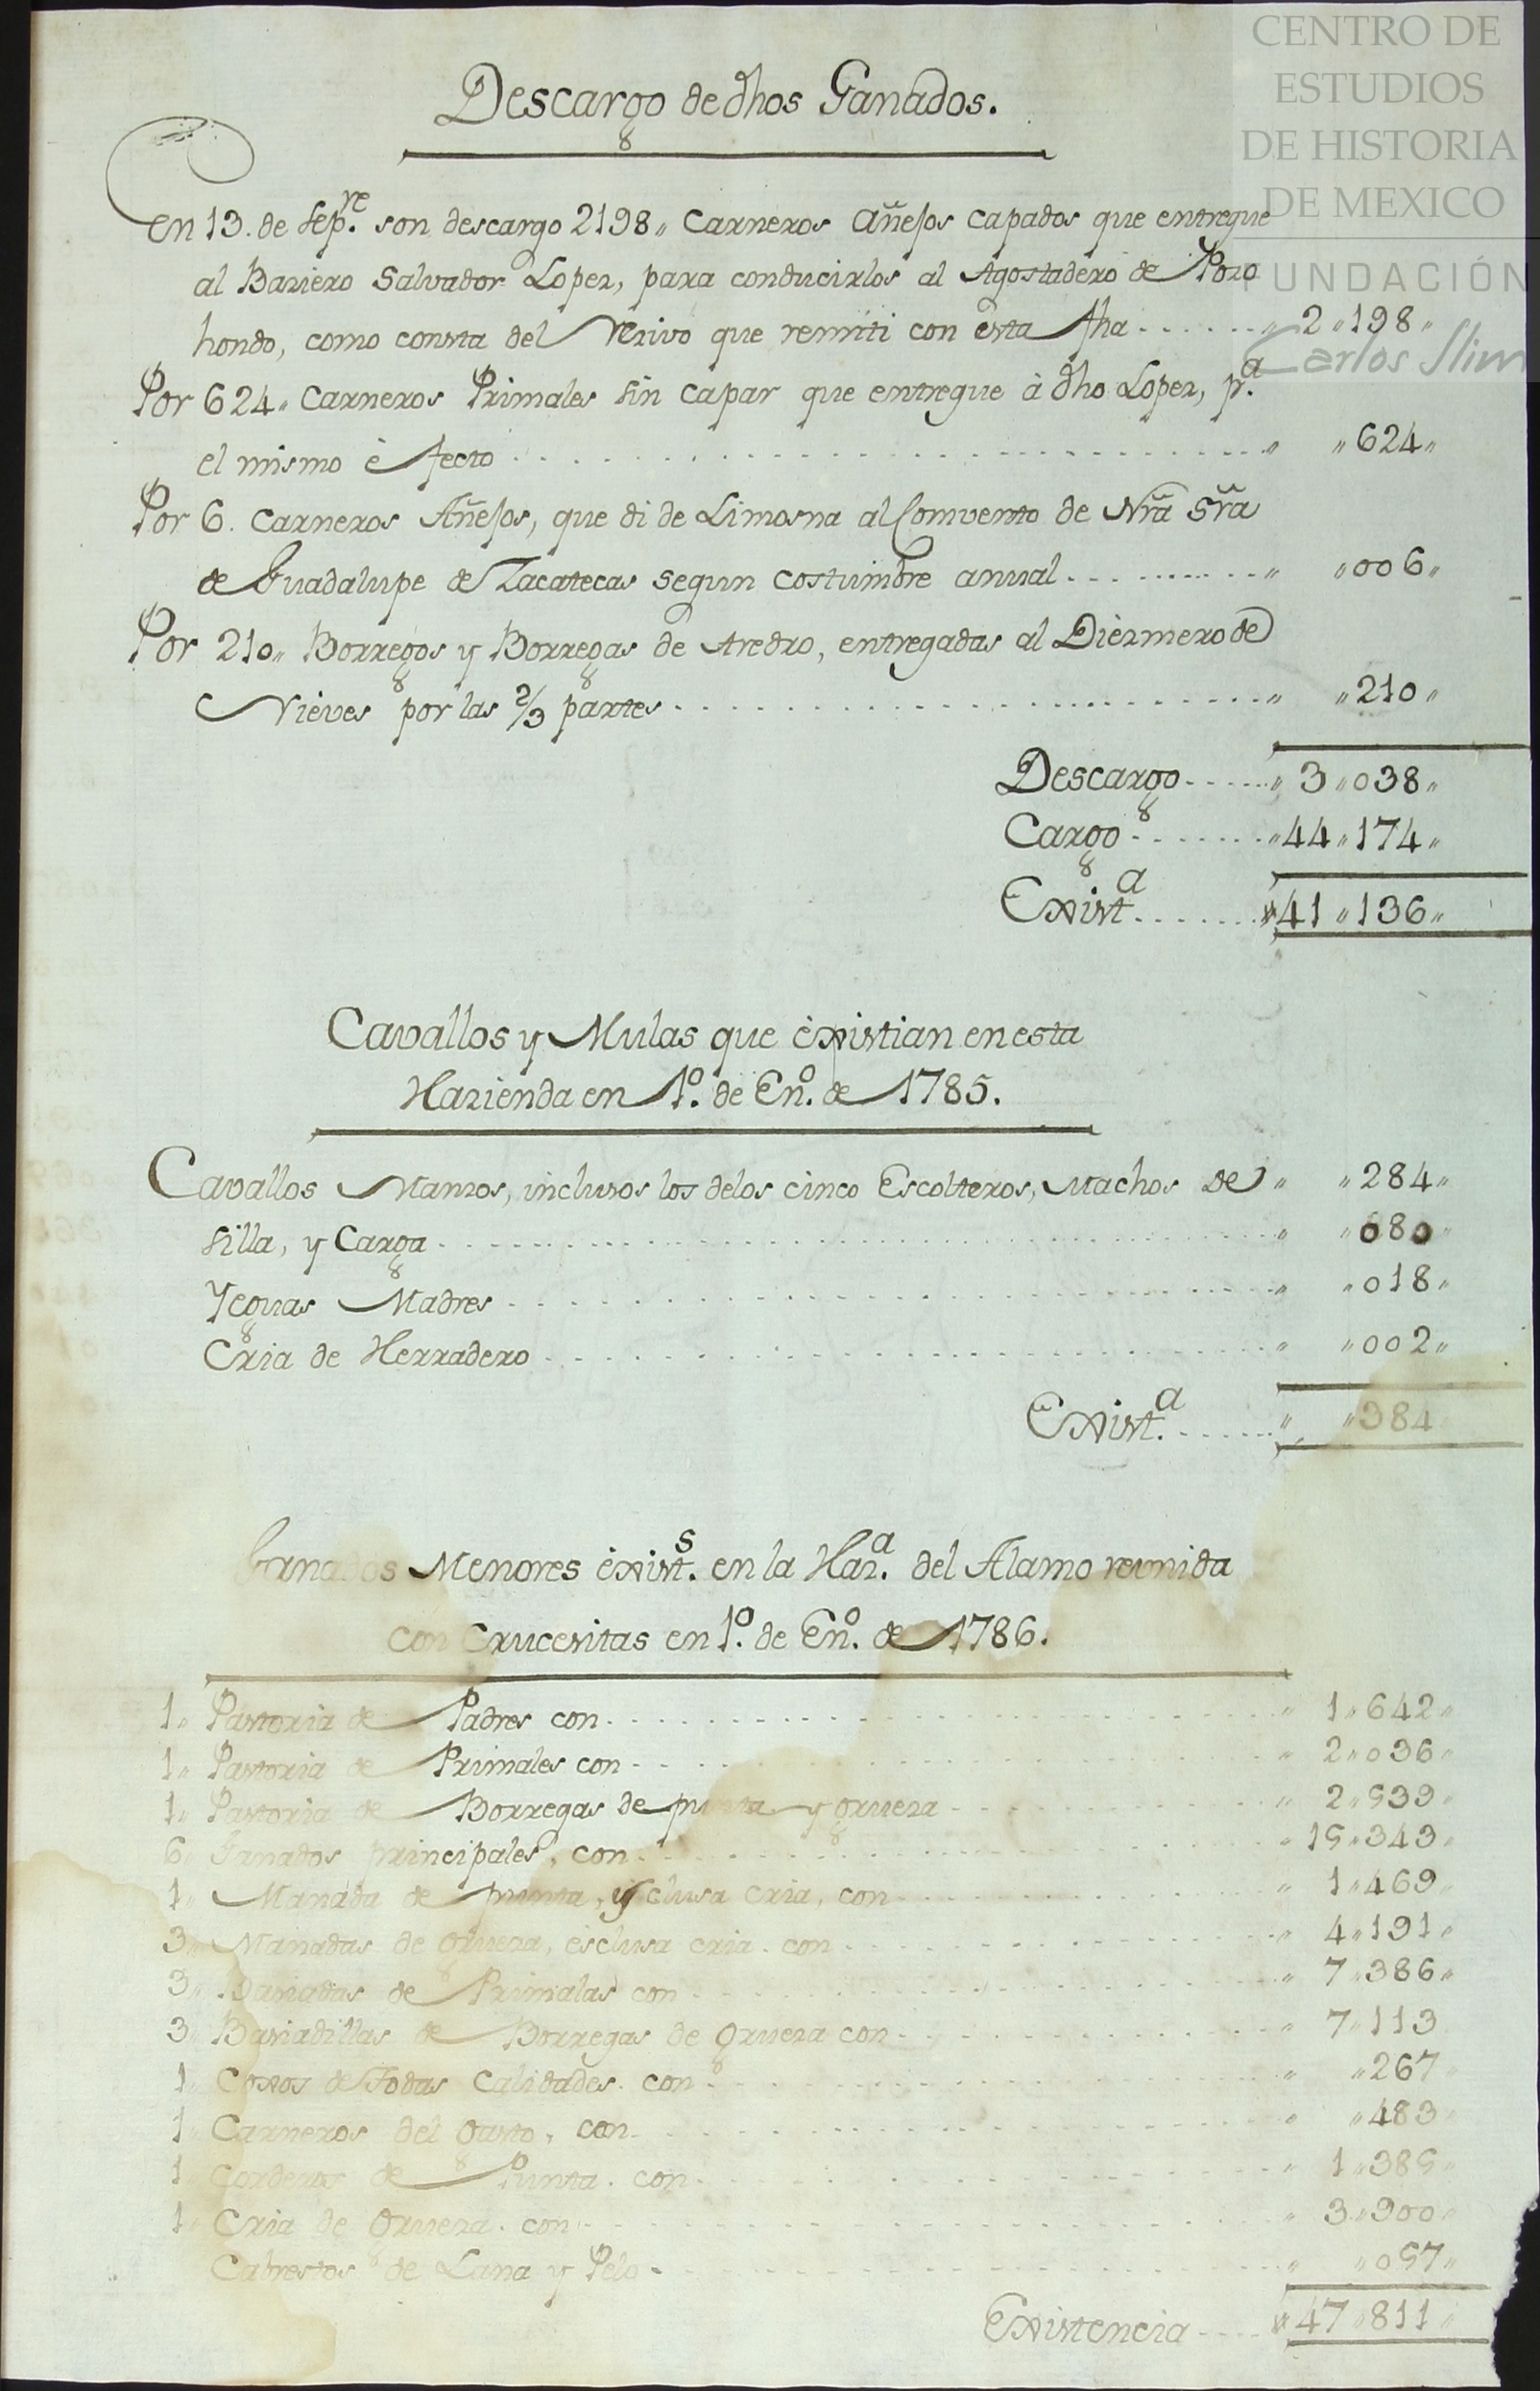 CENTRO DE
ESTUDIOS
DE HISTORIA
DE MEXICO
FUNDACIÓN
Carlos Slim
Descargo de dhos Ganados.
En 13. de Sepre. son descargo 2198„ Carneros Añejos capados que entregue
al Baziero Salvador Lopez, para conducirlos al Agostadero de Pozo
hondo, como consta del Rezivo que remiti con esta fha . . . . . . „ 2„198„
Por 624„ Carneros Primales sin capar que entregue à dho Lopez, pa.
el mismo èfecto . . . . . . „ „624„
Por 6. Carneros Añejos, que di de Limosna al Comvento de Nrã Srã
de Guadalupe de Zacatecas segun costumbre anual . . . . . . „ „006„
Por 210„ Borregos y Borregas de Aredro, entregadas al Diezmero de
Nieves por las 2/3 partes . . . . . . „ „210„
Descargo . . . . . „ 3„038„
Cargo . . . . . . „44„174„
Exista. . . . . . „41„136„
Cavallos y Mulas que èxistian en esta
Hazienda en 1º. de Enº. de 1785.
Cavallos Mansos, inclusos los delos cinco Escolteros, Machos de „ „284„
silla, y Carga . . . . . . „ „080„
Yeguas Madres . . . . . . „ „018„
Cria de Herradero . . . . . . „ „002„
Exista. . . . . . „ „384
Ganados Menores èxists. en la Haza. del Alamo reunida
con Crucesitas en 1º. de Enº. de 1786.
1„ Pastoria de Padres con . . . . . . „ 1„642„
1„ Pastoria de Primales con . . . . . . „ 2„036„
1„ Pastoria de Borregas de punta y grueza . . . . . . „ 2„939„
6„ Ganados principales, con . . . . . . „ 15„343„
1„ Manada de punta, yclusa cria, con . . . . . . „ 1„469„
3„ Manadas de grueza, èsclusa cria. con . . . . . . „ 4„191„
3„ Basiadas de Primalas con . . . . . . „ 7„386„
3„ Basiadillas de Borregas de grueza con . . . . . . „ 7„113
1„ Coxos de Todas Calidades. con . . . . . . „ „267
1„ Carneros del gasto, con . . . . . . „ „483
1„ Corderos de Punta. con . . . . . . „ 1„385„
1„ Cria de grueza. con . . . . . . „ 3„900„
Cabrestos de Lana y Pelo . . . . . . „ „057„
Existencia . . . . „47„811„